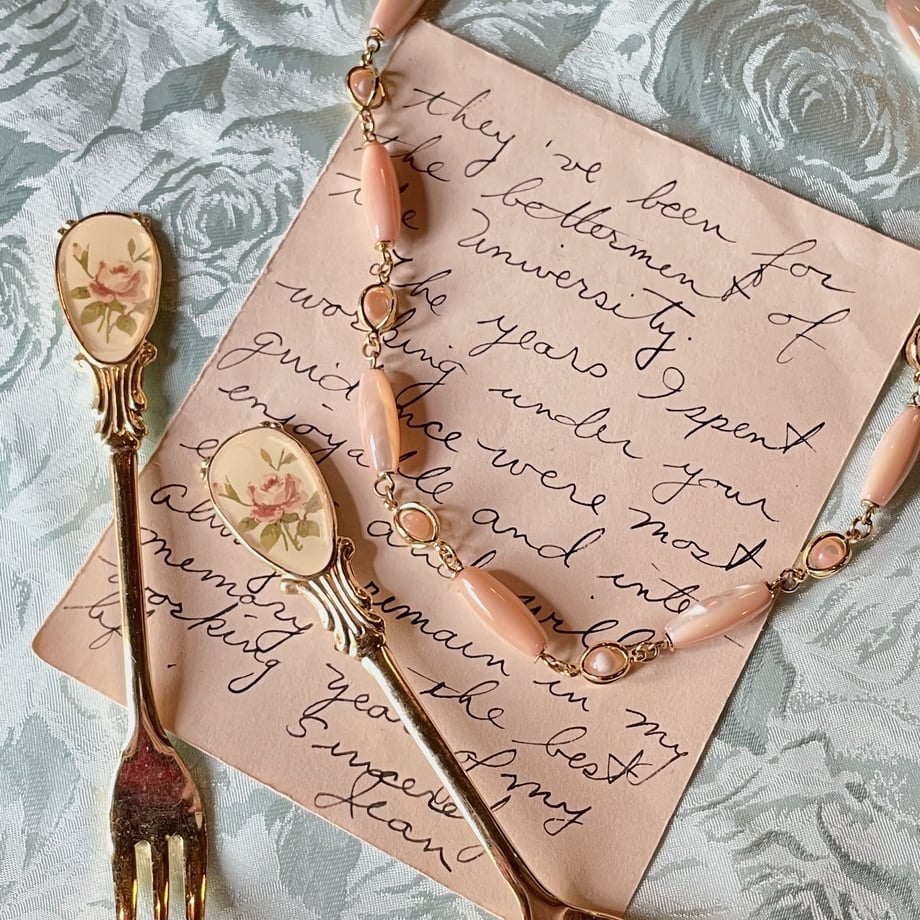 they've been for
the betterment of
The University.
The years I spent
working under your
guidance were most
enjoyable and inte-
and will
Always remain in my
memory the best
working years of my
Sincerely
Jean